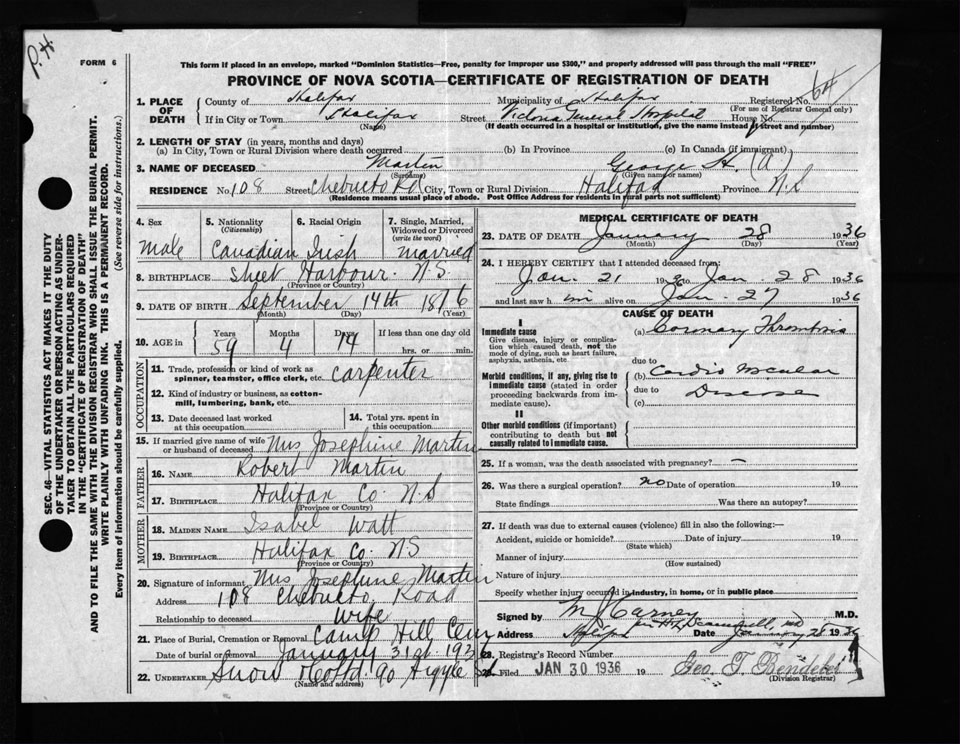 P.H.
FORM 6
This form if placed in an envelope, marked "Dominion Statistics—Free, penalty for improper use $300," and properly addressed will pass through the mail "FREE"
PROVINCE OF NOVA SCOTIA—CERTIFICATE OF REGISTRATION OF DEATH
1. PLACE OF DEATH
County of Halifax Municipality of Halifax Registered No. 64
(For use of Registrar General only)
If in City or Town Halifax Street Victoria General Hospital House No.
(Name) (If death occurred in a hospital or institution, give the name instead of street and number)
2. LENGTH OF STAY (in years, months and days)
(a) In City, Town or Rural Division where death occurred (b) In Province (c) In Canada (if immigrant)
3. NAME OF DECEASED Martin George H. (a)
(Surname) (Given name or names)
RESIDENCE No. 108 Street Chebucto Rd City, Town or Rural Division Halifax Province N.S
(Residence means usual place of abode. Post Office Address for residents in rural parts not sufficient)
4. Sex
male
5. Nationality
(Citizenship)
Canadian
6. Racial Origin
Irish
7. Single, Married, Widowed or Divorced
(write the word)
married
8. BIRTHPLACE Sheet Harbour. N.S.
(Province or Country)
9. DATE OF BIRTH September 14th 1876
(Month) (Day) (Year)
10. AGE in Years Months Days If less than one day old
59 4 14 hrs. or min.
OCCUPATION
11. Trade, profession or kind of work as
spinner, teamster, office clerk, etc. carpenter
12. Kind of industry or business, as cotton-
mill, lumbering, bank, etc.
13. Date deceased last worked
at this occupation
14. Total yrs. spent in
this occupation
15. If married give name of wife
or husband of deceased Mrs Josephine Martin
FATHER
16. NAME Robert Martin
17. BIRTHPLACE Halifax Co. N.S
(Province or Country)
MOTHER
18. MAIDEN NAME Isabel Watt
19. BIRTHPLACE Halifax Co. N.S
(Province or Country)
20. Signature of informant Mrs Josephine Martin
Address 108 Chebucto Road
Relationship to deceased wife
21. Place of Burial, Cremation or Removal Camp Hill Cemy
Date of burial or removal January 31st 193
22. UNDERTAKER Snow & Co Ltd. 90 Argyle St
(Name and address)
MEDICAL CERTIFICATE OF DEATH
23. DATE OF DEATH January 28 1936
(Month) (Day) (Year)
24. I HEREBY CERTIFY that I attended deceased from:
Jan. 21 1936 to Jan 28 1936
and last saw him alive on Jan. 27 1936
CAUSE OF DEATH
I
Immediate cause
Give disease, injury or complica-
tion which caused death, not the
mode of dying, such as heart failure,
asphyxia, asthenia, etc
(a) Coronary Thrombosis
due to
Morbid conditions, if any, giving rise to
immediate cause (stated in order
proceeding backwards from im-
mediate cause).
(b) Cardio Vascular
due to Disease
(c)
II
Other morbid conditions (if important)
contributing to death but not
causally related to immediate cause.
25. If a woman, was the death associated with pregnancy? —
26. Was there a surgical operation? no Date of operation 19
State findings Was there an autopsy?
27. If death was due to external causes (violence) fill in also the following:—
Accident, suicide or homicide? Date of injury 19
(State which)
Manner of injury
(How sustained)
Nature of injury
Specify whether injury occurred in industry, in home, or in public place
Signed by M J Carney M.D.
Address Halifax Date January 28 1936
28. Registrar's Record Number
Filed JAN 30 1936 19 Geo. T. Bendeber
(Division Registrar)
SEC. 46—VITAL STATISTICS ACT MAKES IT THE DUTY
OF THE UNDERTAKER OR PERSON ACTING AS UNDER-
TAKER TO OBTAIN ALL THE PARTICULARS REQUIRED
IN THE "CERTIFICATE OF REGISTRATION OF DEATH"
AND TO FILE THE SAME WITH THE DIVISION REGISTRAR WHO SHALL ISSUE THE BURIAL PERMIT.
WRITE PLAINLY WITH UNFADING INK. THIS IS A PERMANENT RECORD.
Every item of information should be carefully supplied. (See reverse side for instructions.)